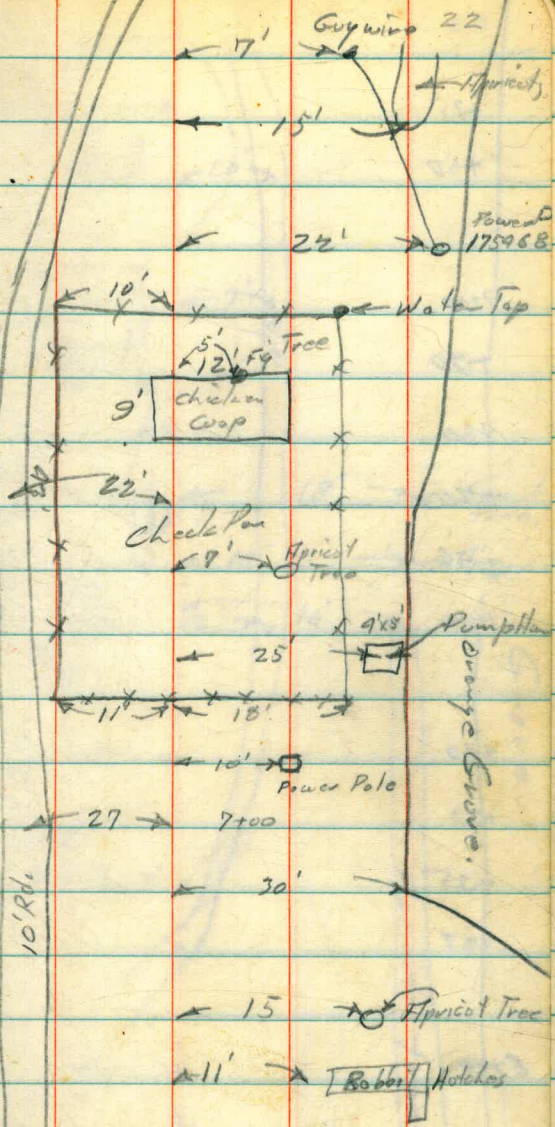 22
Guywire
7'
Apricots
15'
22'
Power P
175968
10'
Water Tap
5'
Fig Tree
12'
9'
Chicken
Coop
22'
Check Pen
7'
Apricot
Tree
9'x8'
25'
Orange Grove.
11'
18'
10'
Power Pole
27
7+00
30'
10' Rd.
15
Apricot Tree
11'
Rabbit Hutches